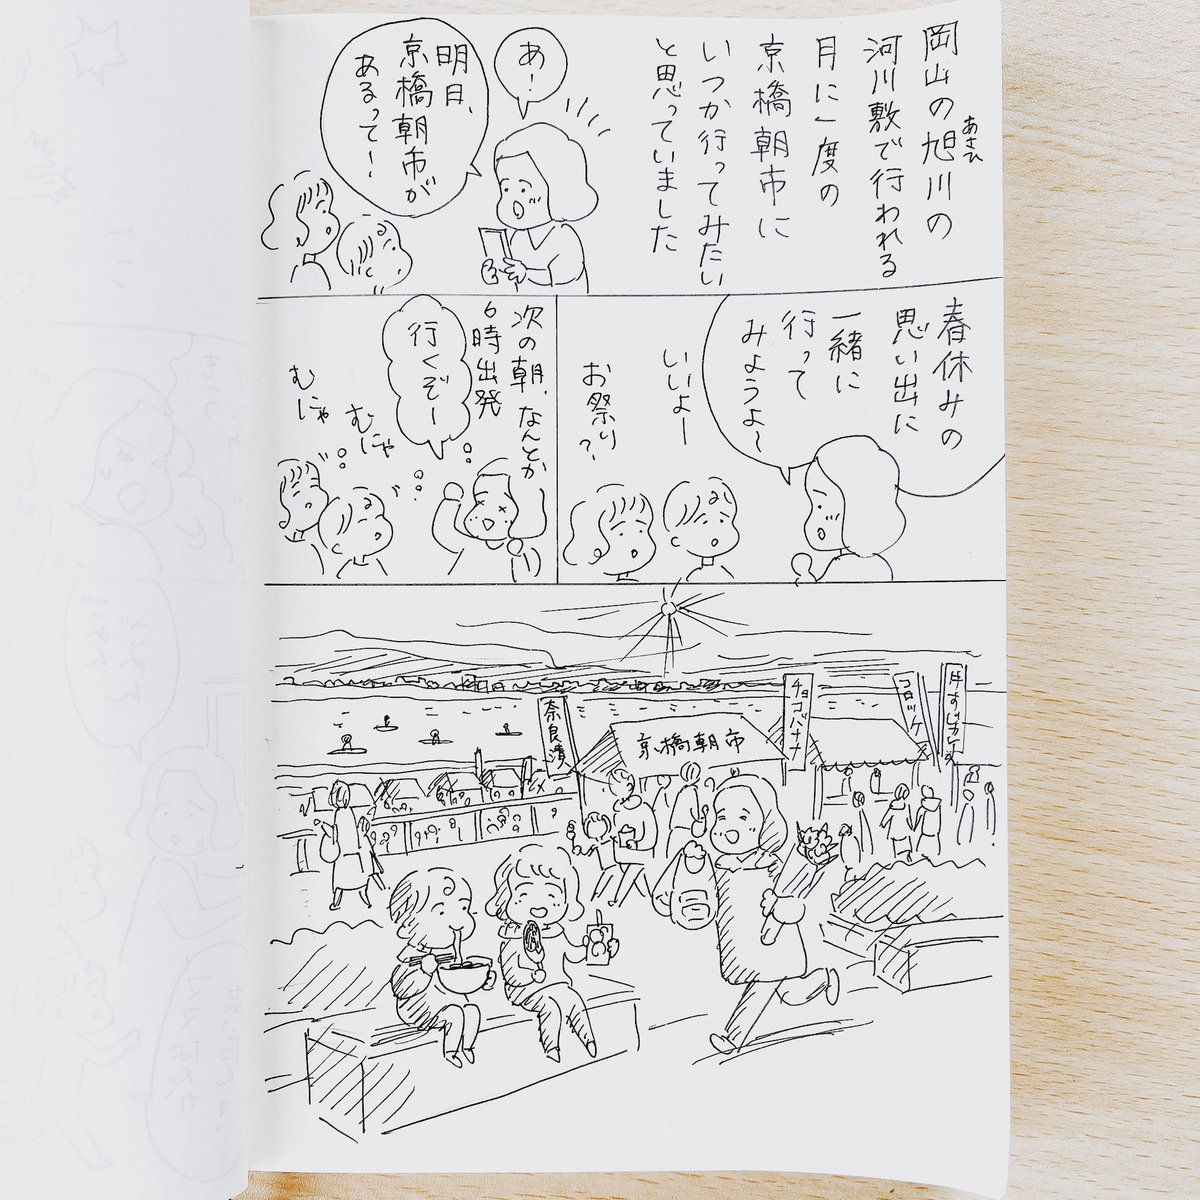 岡山の旭川の
あさひ
河川敷で行われる
月に1度の
京橋朝市に
いつか行ってみたい
と思っていました
あ!
明日、
京橋朝市が
あるって!
春休みの
思い出に
一緒に
行って
みようよ〜
いいよー
お祭り?
次の朝、なんとか
6時出発
行くぞー
むにゃ
むにゃ
奈良漬
京橋朝市
チョコバナナ
コロッケ